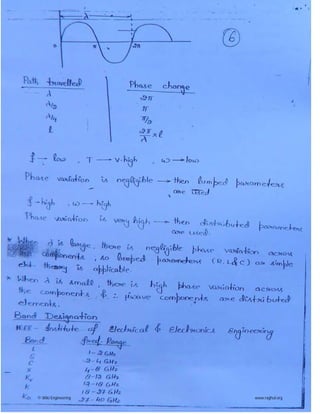 λ
6
0 π 2π
Path travelled Phase change
λ 2π
λ/2 π
λ/4 π/2
l 2π/λ × l
f → low , T → v.high , ω → low
Phase variation is negligible → then lumped parameters
are used.
f - high , ω → high
Phase variation is very high → then distributed parameters
are used.
* When λ is large, there is negligible phase variation across
the components, so lumped parameters (R, L & C) or simple
ckt theory is applicable.
* When λ is small, there is high phase variation across
the components, & ∴ μwave components are distributed
elements.
Band Designation
IEEE - Institute of Electrical & Electronics Engineering
Band Freq. Range
L 1-2 GHz
S 2-4 GHz
C 4-8 GHz
X 8-12 GHz
Ku 12-18 GHz
K 18-27 GHz
Ka 27-40 GHz
Engineering www.raghul.org